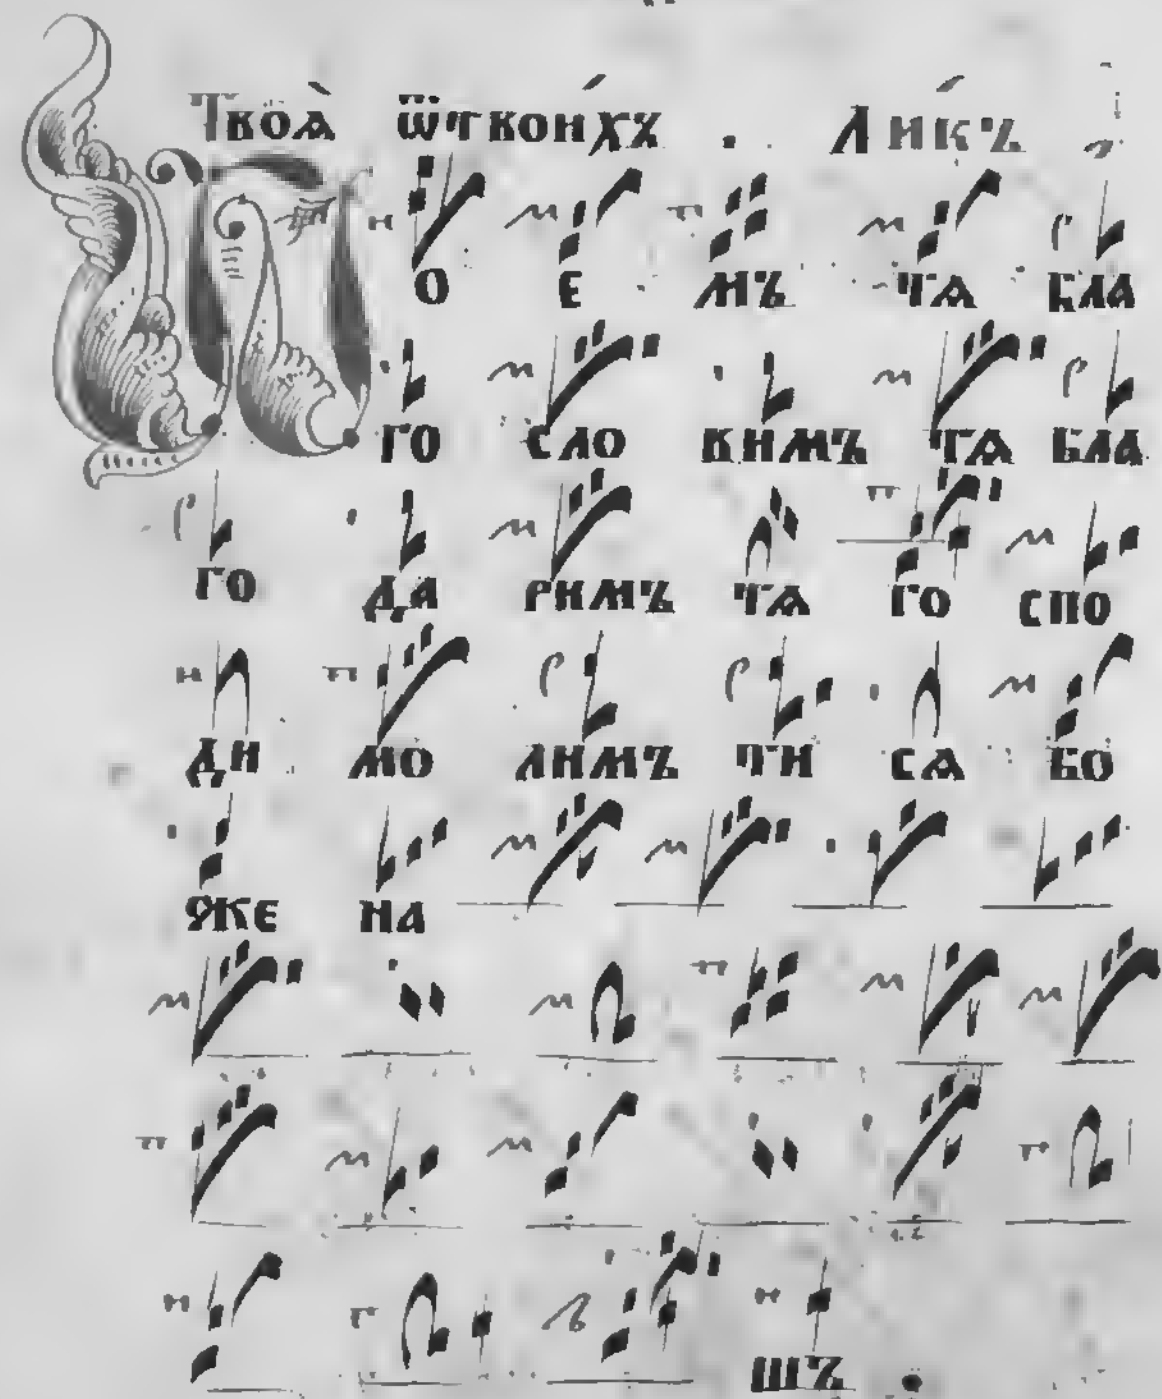 Твоѧ̀ ѿтвои́хъ . Ли́къ
П о е мъ тѧ бла
го сло вимъ тѧ бла
го да римъ тѧ го спо
ди мо лимъ ти сѧ бо
же на
шъ .